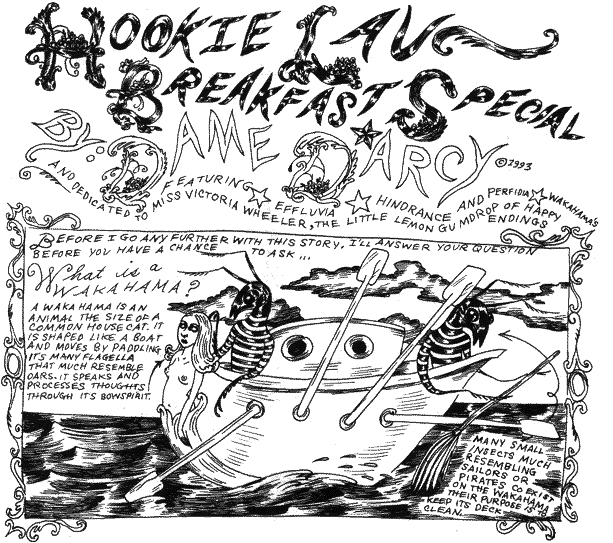 HOOKIE LAU
BREAKFAST SPECIAL
BY: DAME D'ARCY ©1993
FEATURING EFFLUVIA HINDRANCE AND PERFIDIA WAKAHAMA'S
AND DEDICATED TO MISS VICTORIA WHEELER, THE LITTLE LEMON GUMDROP OF HAPPY ENDINGS
BEFORE I GO ANY FURTHER WITH THIS STORY, I'LL ANSWER YOUR QUESTION
BEFORE YOU HAVE A CHANCE TO ASK...
What is a
WAKAHAMA?
A WAKAHAMA IS AN
ANIMAL THE SIZE OF A
COMMON HOUSE CAT. IT
IS SHAPED LIKE A BOAT
AND MOVES BY PADDLING
IT'S MANY FLAGELLA
THAT MUCH RESEMBLE
OARS. IT SPEAKS AND
PROCESSES THOUGHTS
THROUGH ITS BOWSPIRIT.
MANY SMALL
INSECTS MUCH
RESEMBLING
SAILORS OR
PIRATES CO EXIST
ON THE WAKAHAMA
THEIR PURPOSE IS TO
KEEP ITS DECK
CLEAN.